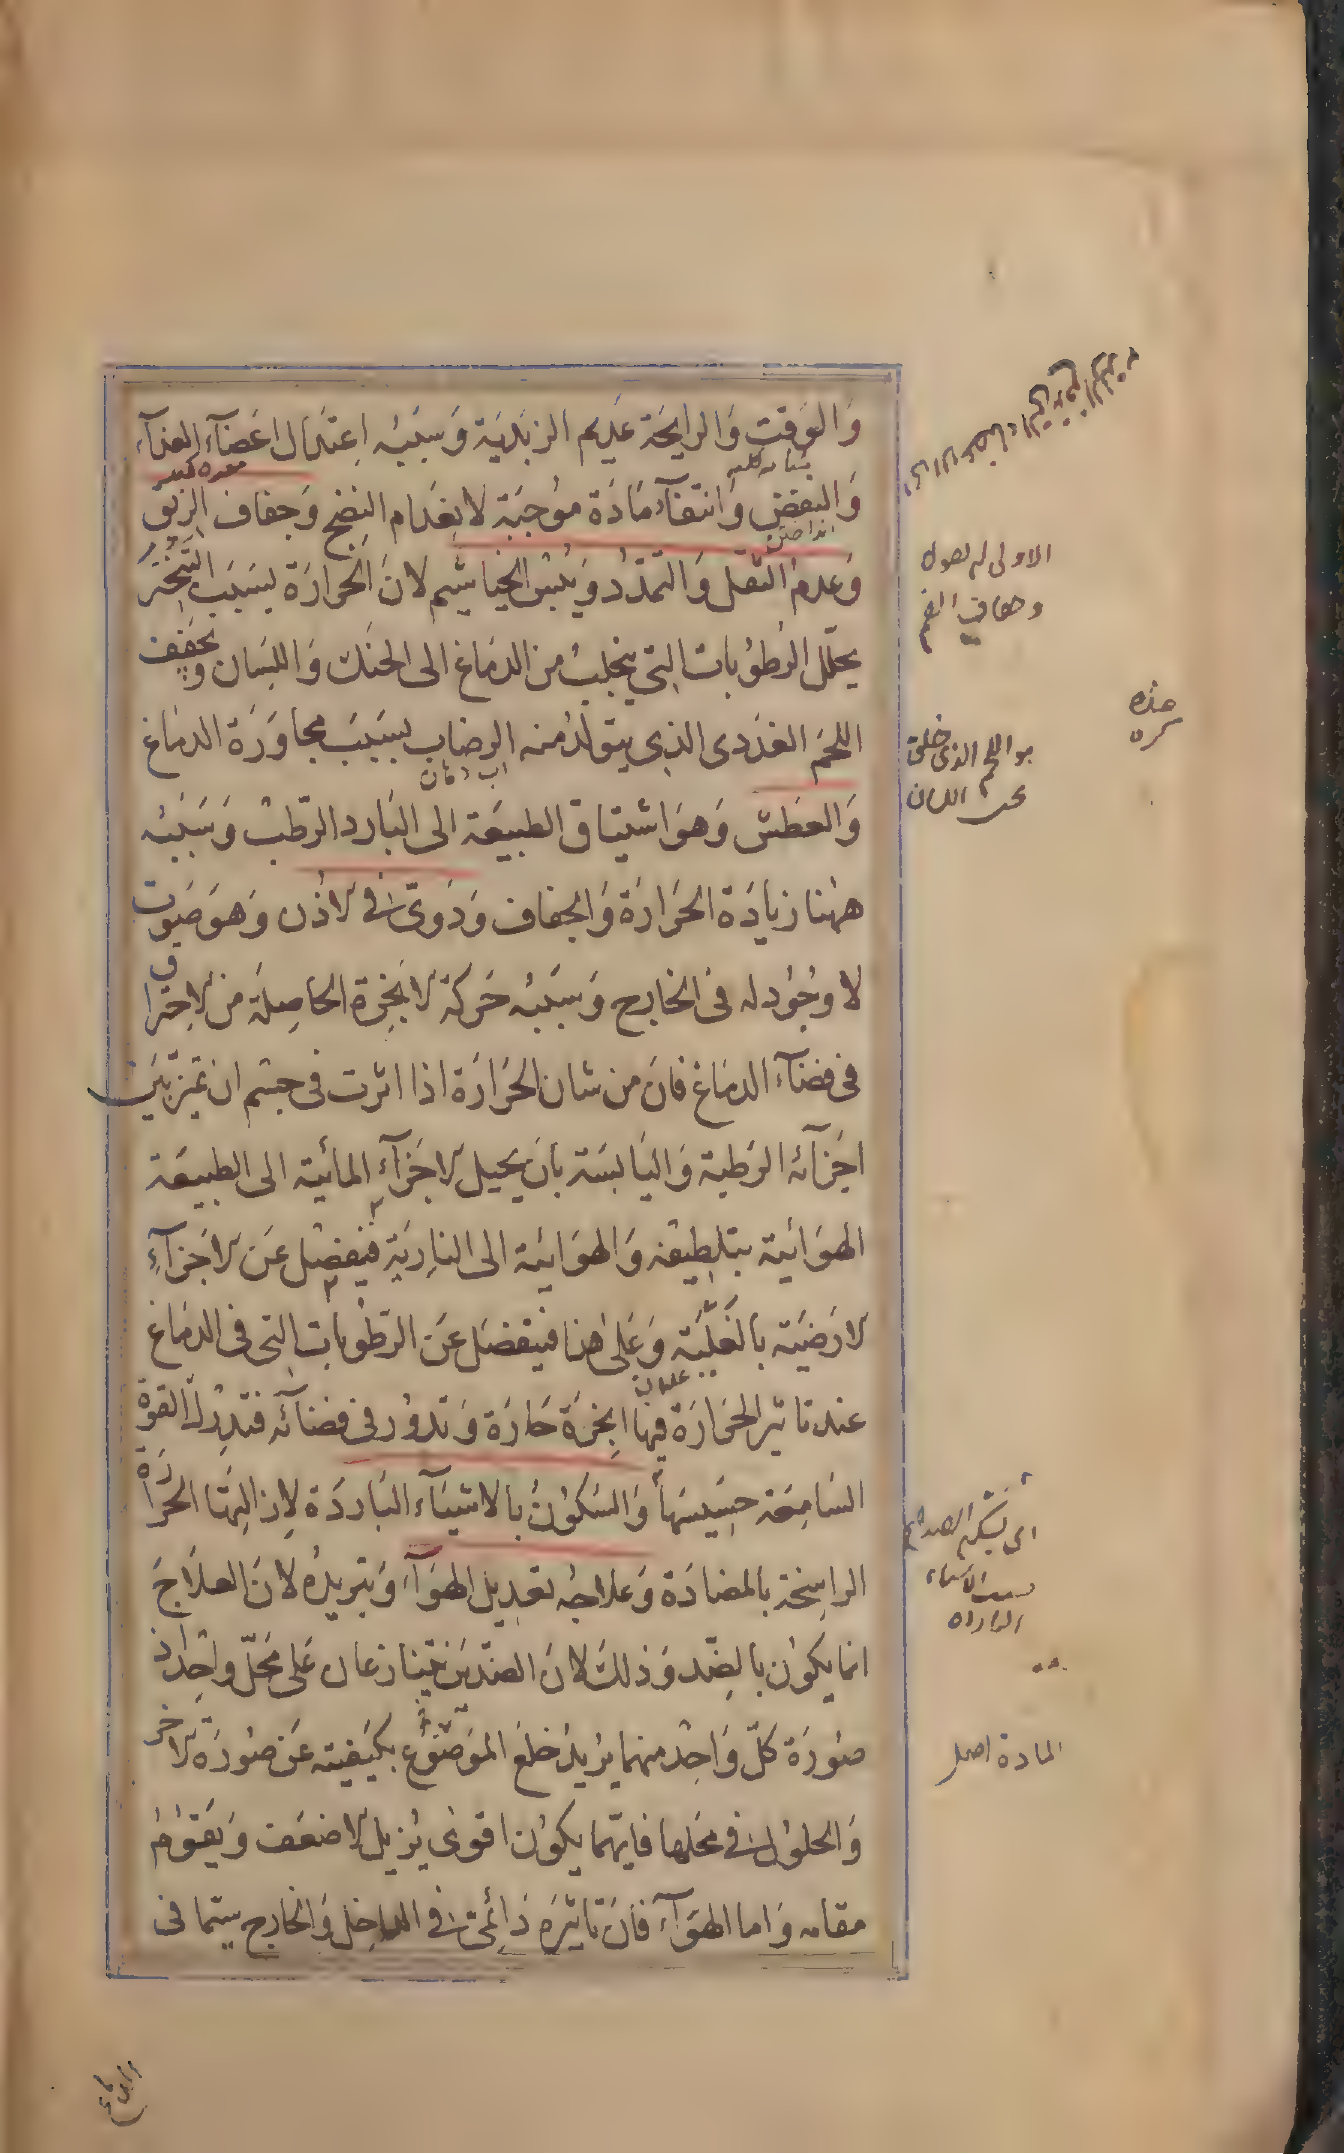 وَالوَقتِ وَالرايحَة عَديم الزبَديَة وَسبَبُه اعتدَال اعَضآء الغذآء
وَالنفض وَانتفآء مَادَة مُوجبَة لانعدَام النضج وَجفاف الريق
وَعدمُ الثقل وَالتمدّد وَيبسُ الخياشيم لانَ الحرارَة بسَبَب التسخين
يحلّل الرطوُبات التي ينجلبُ من الدماغ الى الحنَك وَاللسَان ويجفف
اللحَم الغدَدى الذى يتولدُ منه الرضاب بسَبَب مجاوَرَة الدماغ
اب دهان
وَالعطش وَهوَ اشتياق الطبيعَة الى البَارد الرّطب وَسَبَبُه
ههُنا زيادَة الحَرارَة وَالجفاف وَدَوىّ فى الاذن وَهوَ صَوت
لا وجُود له فى الخارج وَسبَبُه حَركة الابخرَة الحاصِلة من الاحترا
ق
فى فضآء الدماغ فانَ من شان الحَرارَة اذا اثرت فى جسم ان تميز بَين
اجزَآئه الرَطبة وَاليَابسَة بانَ يحيل الاجزَآء المائية الى الطبيعَة
الهوَائية بتلطيفه وَالهوَائية الى النارِيَة فينفصل عَن الاجَزآءِ
الارَضيَة بالغلَيّة وَعَلى هذا فينفصَل عَن الرّطوُبات التى فى الدماغ
غليان
عند تاثير الحَرَارَة فيها ابخرَة حَارَة وَتدوُر فى فضآئه فتدرك القوة
السَامعَة حسَيسهَا وَالسَكوُنُ بالاشيَآء البَاردَة لازالتهَا الحرَارَة
الراسِخة بالمضادَة وَعلاجُه تعَديل الهوَآء وَتبريدُه لانَ العلَاجَ
انما يكوُن بالضّد وَذلكَ لانَ الضدّيَن يتنازعان عَلى محَلّ واحِدٍ اذ
صوُرَة كلّ وَاحدٍ منهما يرُيدُ خلعَ الموَضوُع بكيَفيته عَن صوُرَة الاخر
وَالحلوُل فى محَلها فايهّما يكوُن اقوىَ يزُيل الاضعَف وَيقوُمُ
مقامه وَاما الهوَآء فانَ تاثيَره دَائمىّ فى الداخِل وَالخارج سيّما فى
الاولى لم يصول
وجفاف الفم
هو اللحم الذى خلق
تحت اللسان
هذه
اى تسكين الصداع
بسبب الاشياء
الباردة
المادة اصل